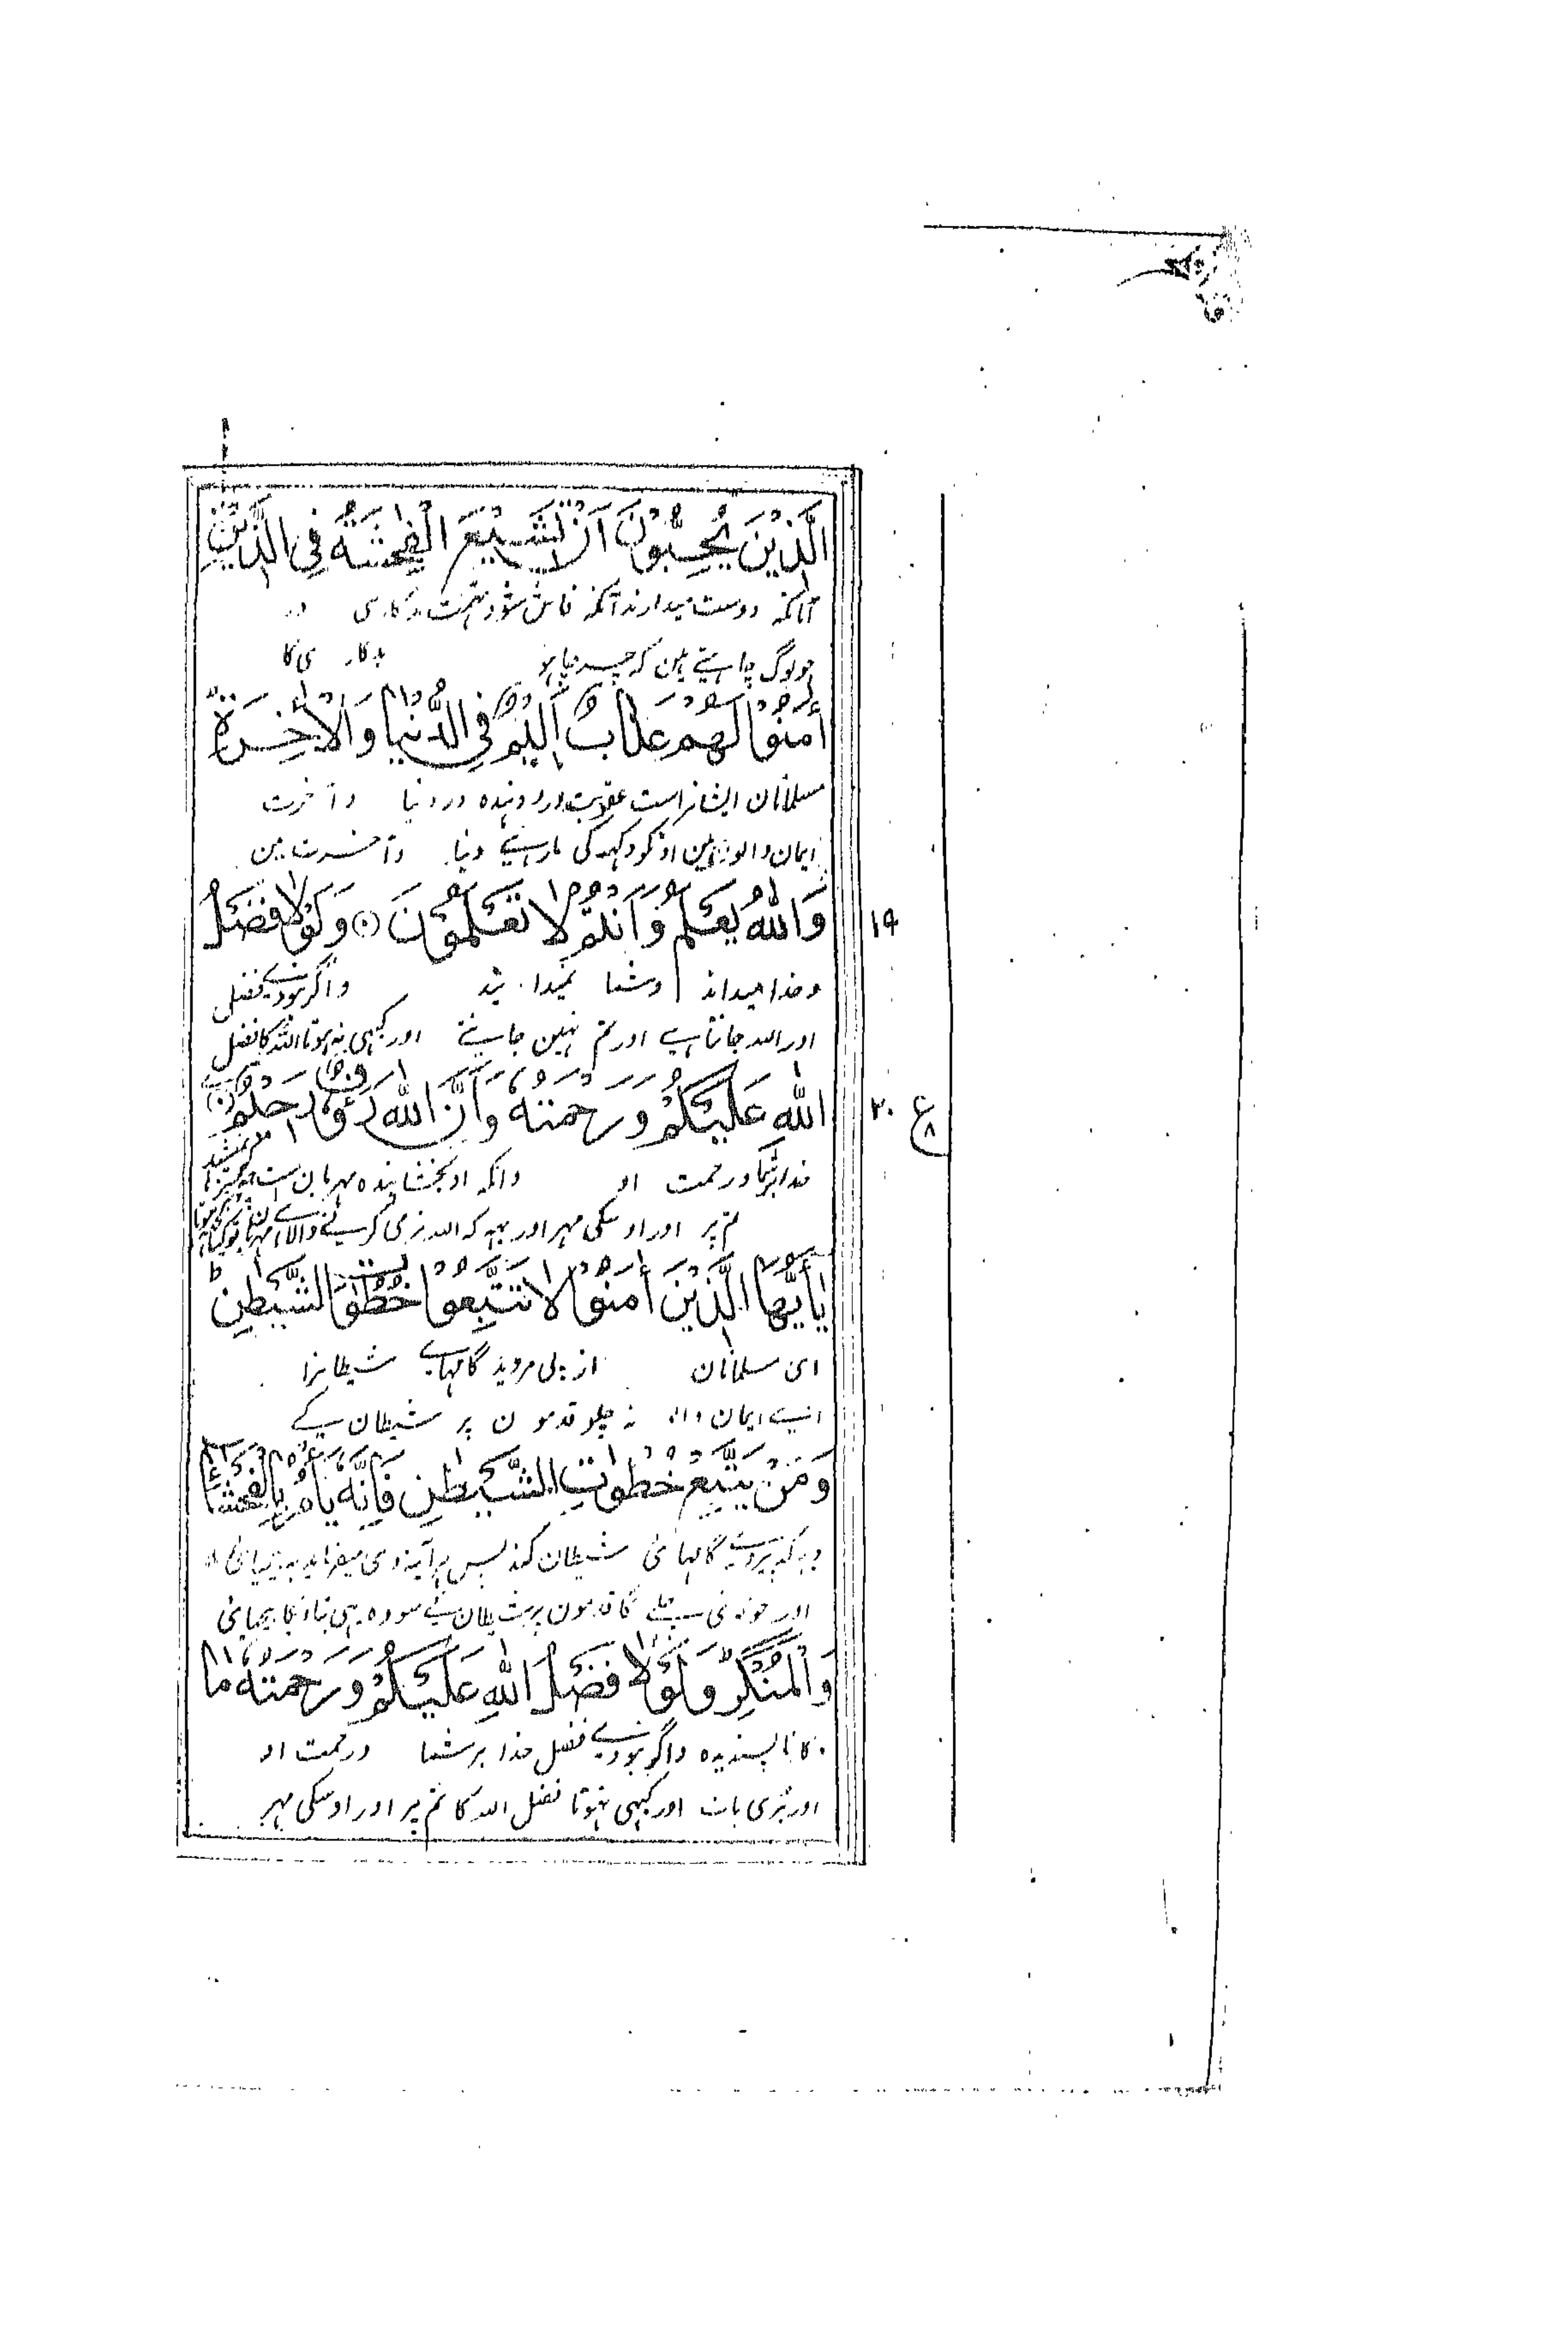 الَّذِيْنَ يُحِبُّوْنَ اَنْ تَشِيْعَ الْفٰحِشَةُ فِي الَّذِيْنَ
آنانکه دوست میدارند آنکه فاش شود تهمت بدکاری در
جو لوگ چاہتے ہین کہ چرچا ہو بدکاری کا
اٰمَنُوْا لَهُمْ عَذَابٌ اَلِيْمٌ فِي الدُّنْيَا وَالْاٰخِرَةِ
مسلمانان ایشانراست عقوبت درد دهنده در دنیا و آخرت
ایمان والون مین اونکو دکہہ کی مار ہے دنیا و آخرت مین
وَاللّٰهُ يَعْلَمُ وَاَنْتُمْ لَا تَعْلَمُوْنَ وَلَوْلَا فَضْلُ
۱۹
و خدا میداند و شما نمیدانید و اگر نبودے فضل
اور اللہ جانتا ہے اور تم نہین جانتے اور کبہی نہ ہوتا اللہ کا فضل
اللّٰهِ عَلَيْكُمْ وَرَحْمَتُهٗ وَاَنَّ اللّٰهَ رَءُوْفٌ رَّحِيْمٌ
۲۰ ع ۸
خدا بر شما و رحمت او و آنکه او بخشاینده مهربان ست
تم پر اور اوسکی مہر اور یہہ کہ اللہ نرمی کرنے والا ہے مہربان
يٰاَيُّهَا الَّذِيْنَ اٰمَنُوْا لَا تَتَّبِعُوْا خُطُوٰتِ الشَّيْطٰنِ ط
ای مسلمانان از پی مروید گامہاے شیطانرا
اے ایمان والو نہ چلو قدمون پر شیطان کے
وَمَنْ يَّتَّبِعْ خُطُوٰتِ الشَّيْطٰنِ فَاِنَّهٗ يَاْمُرُ بِالْفَحْشَاءِ
و ہر کہ پیروے گامہائی شیطان کند پس ہر آئینہ وی میفرماید بہ
اور جو کوئی چلے گا قدمون پر شیطان کے سو وہ یہی بتاویگا بیحیائی
وَالْمُنْكَرِ وَلَوْلَا فَضْلُ اللّٰهِ عَلَيْكُمْ وَرَحْمَتُهٗ مَا
کار ناپسندیده و اگر نبودے فضل خدا بر شما و رحمت او
اور بُری بات اور کبہی نہوتا فضل اللہ کا تم پر اور اوسکی مہر